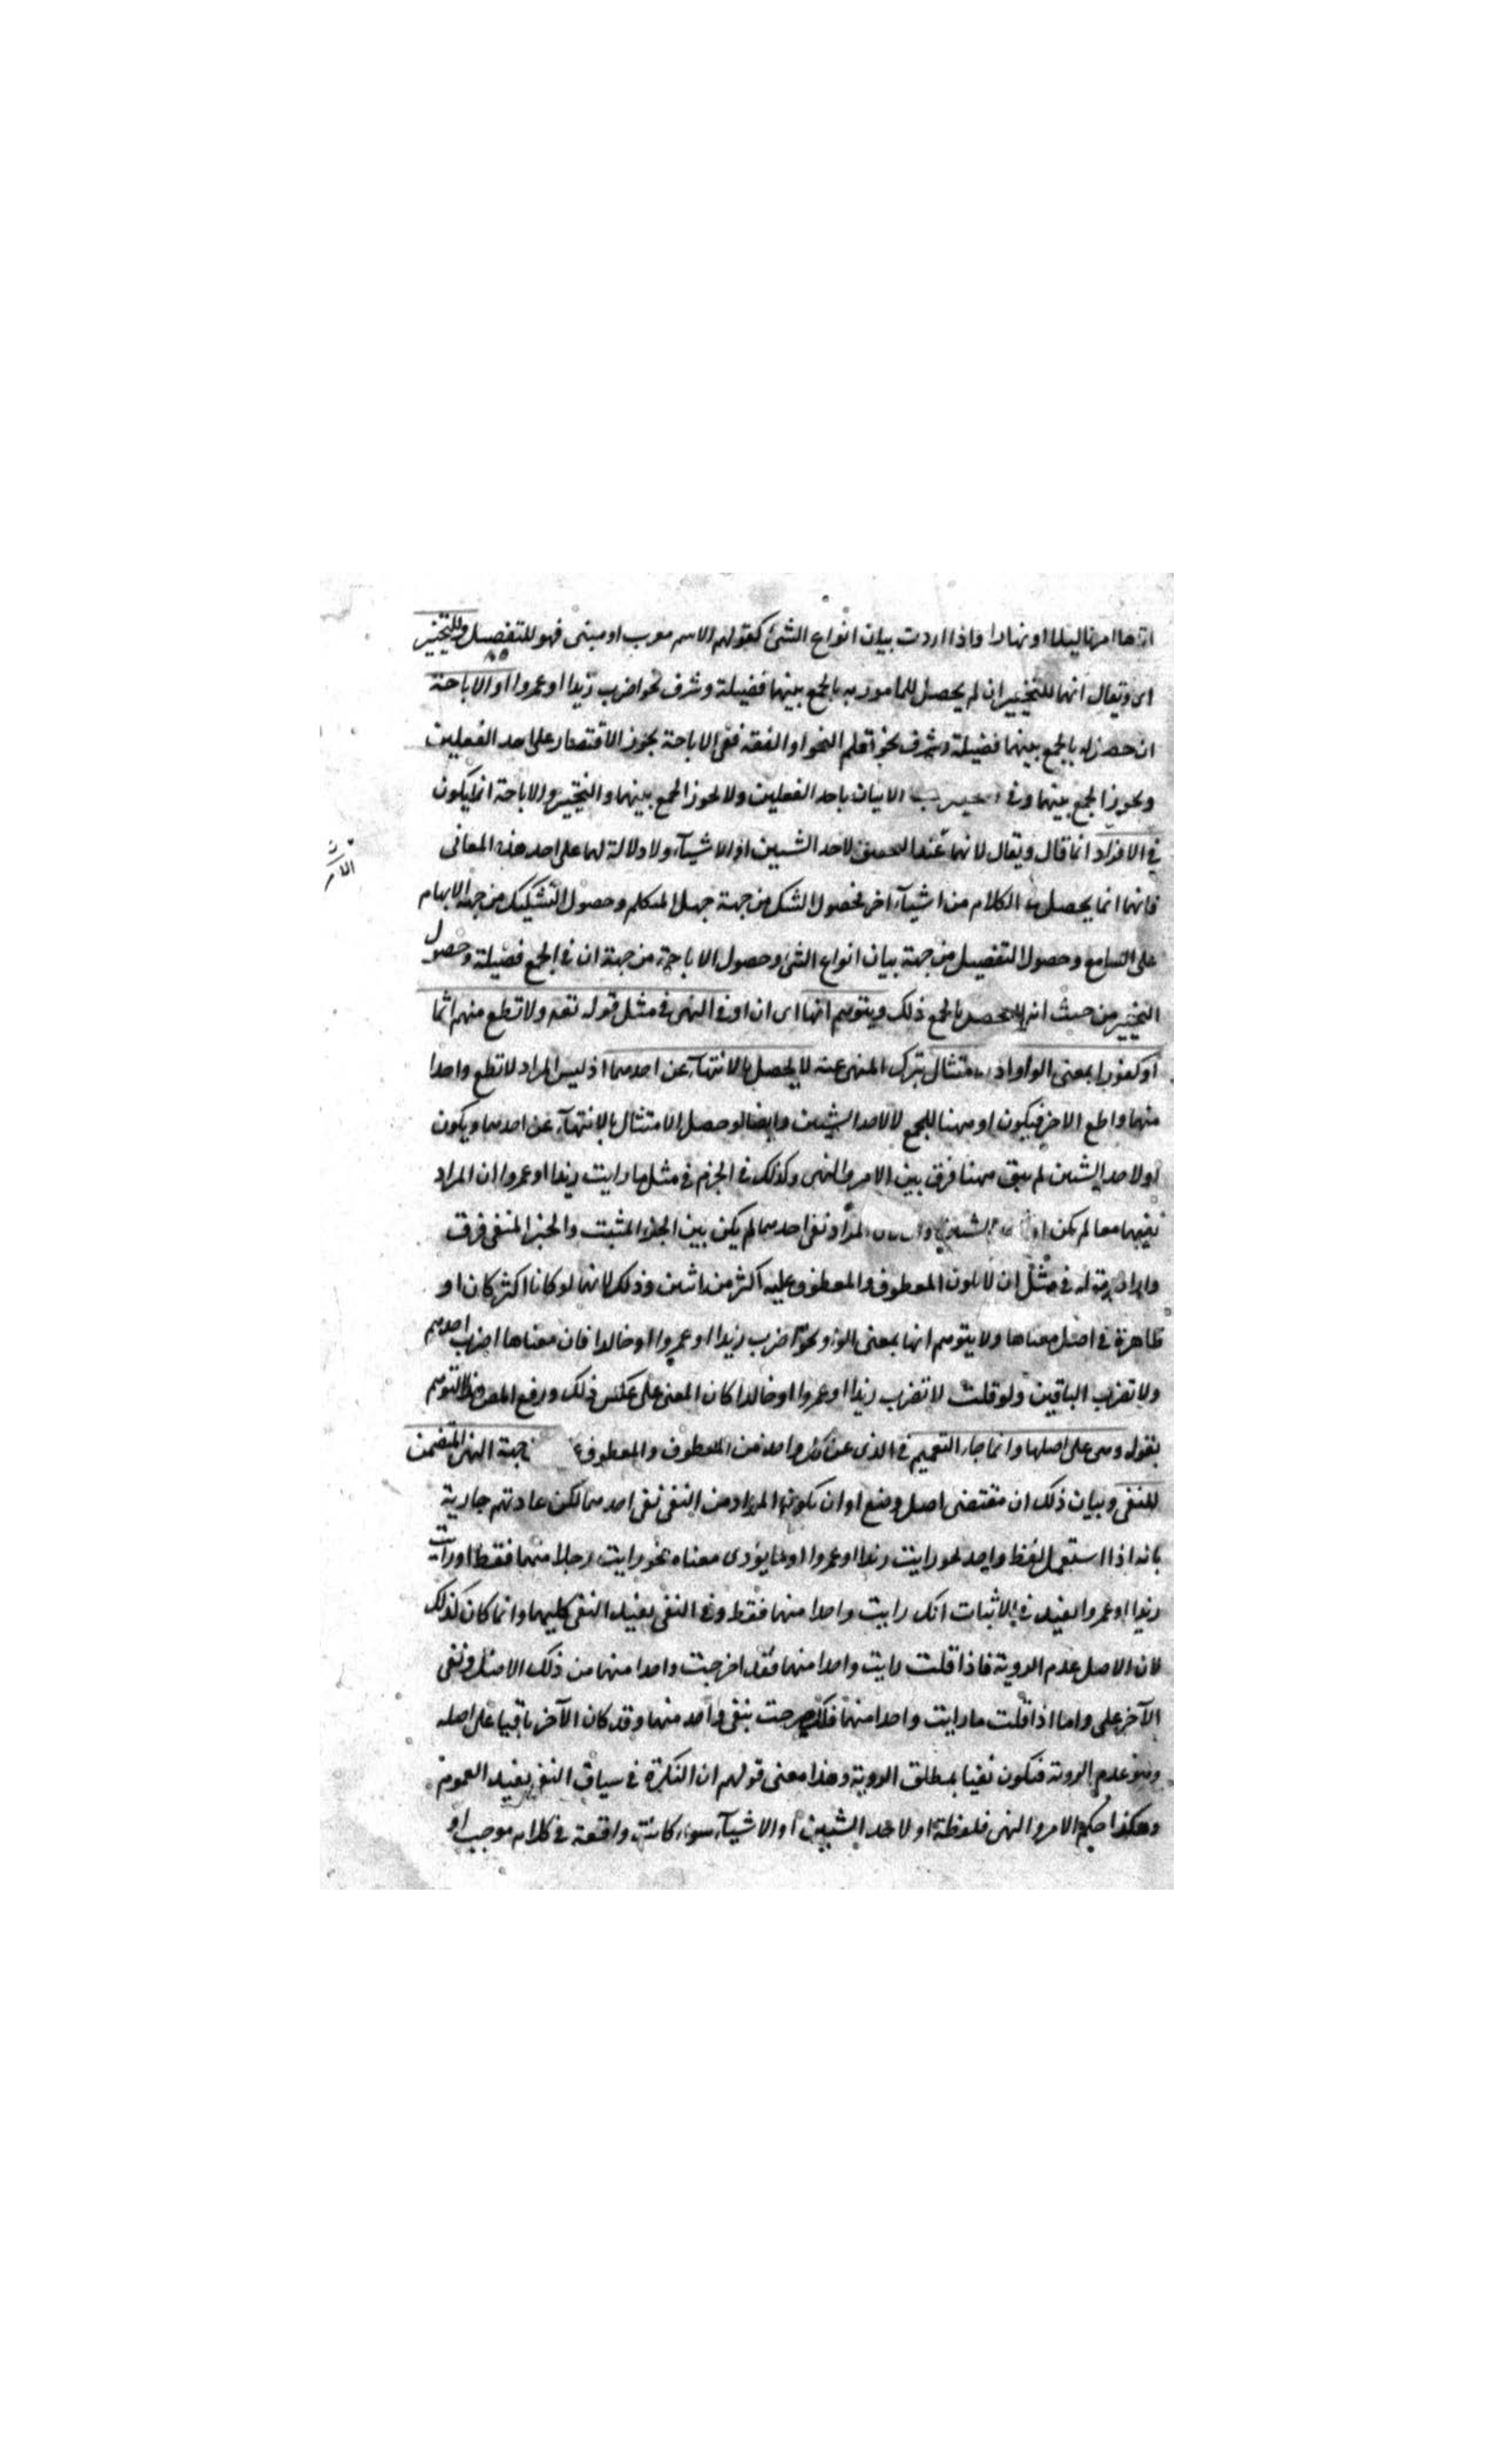 اتاها امرنا ليلا او نهارا واذا اردت بيان انواع الشئ كقولهم الاسم معرب او مبنى فهو للتفصيل وللتخيير
اى ويقال انها للتخيير ان لم يحصل للمامور به بالجمع بينهما فضيلة وشرف نحو اضرب زيدا او عمروا او الاباحة
ان حصل له بالجمع بينهما فضيلة وشرف نحو تعلم النحو او الفقه ففى الاباحة يجوز الاقتصار على احد الفعلين
ويجوز الجمع بينهما وفى الاتيان باحد الفعلين ولا يجوز الجمع بينهما والتخيير والاباحة انما يكون
فى الافراد انما قال ويقال لانها عند التحقيق لاحد الشيئين او الاشياء ولا دلالة لها على احد هذه المعانى
فانها انما يحصل الكلام من اشياء اخر فحصول الشك من جهة جهل المتكلم وحصول التشكيك من جهة الابهام
على السامع وحصول التفصيل من جهة بيان انواع الشئ وحصول الاباحة من جهة ان فى الجمع فضيلة وحصول
التخيير من حيث انه لا يحصل بالجمع ذلك ويتوهم انها اى ان او فى النهى فى مثل قوله تعه ولا تطع منهم اثما
او كفورا بمعنى الواو اذ امتثال بترك المنهى عنه لا يحصل بالانتهاء عن احدهما اذ ليس المراد لا تطع واحدا
منهما واطع الاخر فيكون او ههنا للجمع لا لاحد الشيئين وايضا لو حصل الامتثال بالانتهاء عن احدهما ويكون
او لاحد الشيئين لم يبق ههنا فرق بين الامر والنهى وكذلك فى الجزم فى مثل ما رايت زيدا او عمروا ان المراد
نفيهما معا لم يكن او الشيئين وان كان المراد نفى احدهما لم يكن بين الخبر المثبت والخبر المنفى فرق
وايراد قوله فى مثل ان لا يكون المعطوف والمعطوف عليه اكثر من اثنين وذلك لانهما لو كانا اكثر كان او
ظاهرة فى اصل معناها ولا يتوهم انها بمعنى الواو نحو اضرب زيدا او عمروا او خالدا فان معناها اضرب احدهم
ولا تضرب الباقين ولو قلت لا تضرب زيدا او عمروا او خالدا كان المعنى على عكس ذلك ورفع المص هذا التوهم
بقوله وهى على اصلها وانما جاء التعميم فى الذى عن كل واحد من المعطوف والمعطوف جهة النهى المتضمن
للنفى وبيان ذلك ان مقتضى اصل وضع او ان يكون المراد من النفى نفى احدهما لكن عادتهم جارية
بانه اذا استعمل لفظ واحد نحو رايت زيدا او عمروا او ما يؤدى معناه نحو رايت رجلا منهما فقط او رايت
زيدا او عمروا لفيد فى الاثبات انك رايت واحدا منهما فقط وفى النفى يفيد النفى كليهما وانما كان كذلك
لان الاصل عدم الروية فاذا قلت رايت واحدا منهما فقد اخرجت واحدا منهما من ذلك الاصل وبقى
الآخر على واما اذا قلت ما رايت واحدا منهما فلك صرحت بنفى واحد منهما وقد كان الآخر باقيا على اصله
وهو عدم الروية فيكون نفيا بمطلق الروية وهذا معنى قولهم ان النكرة فى سياق النفى يفيد العموم
وهكذا حكم الامر والنهى فلفظة او لاحد الشيئين او الاشياء سواء كانت واقعة فى كلام موجب او